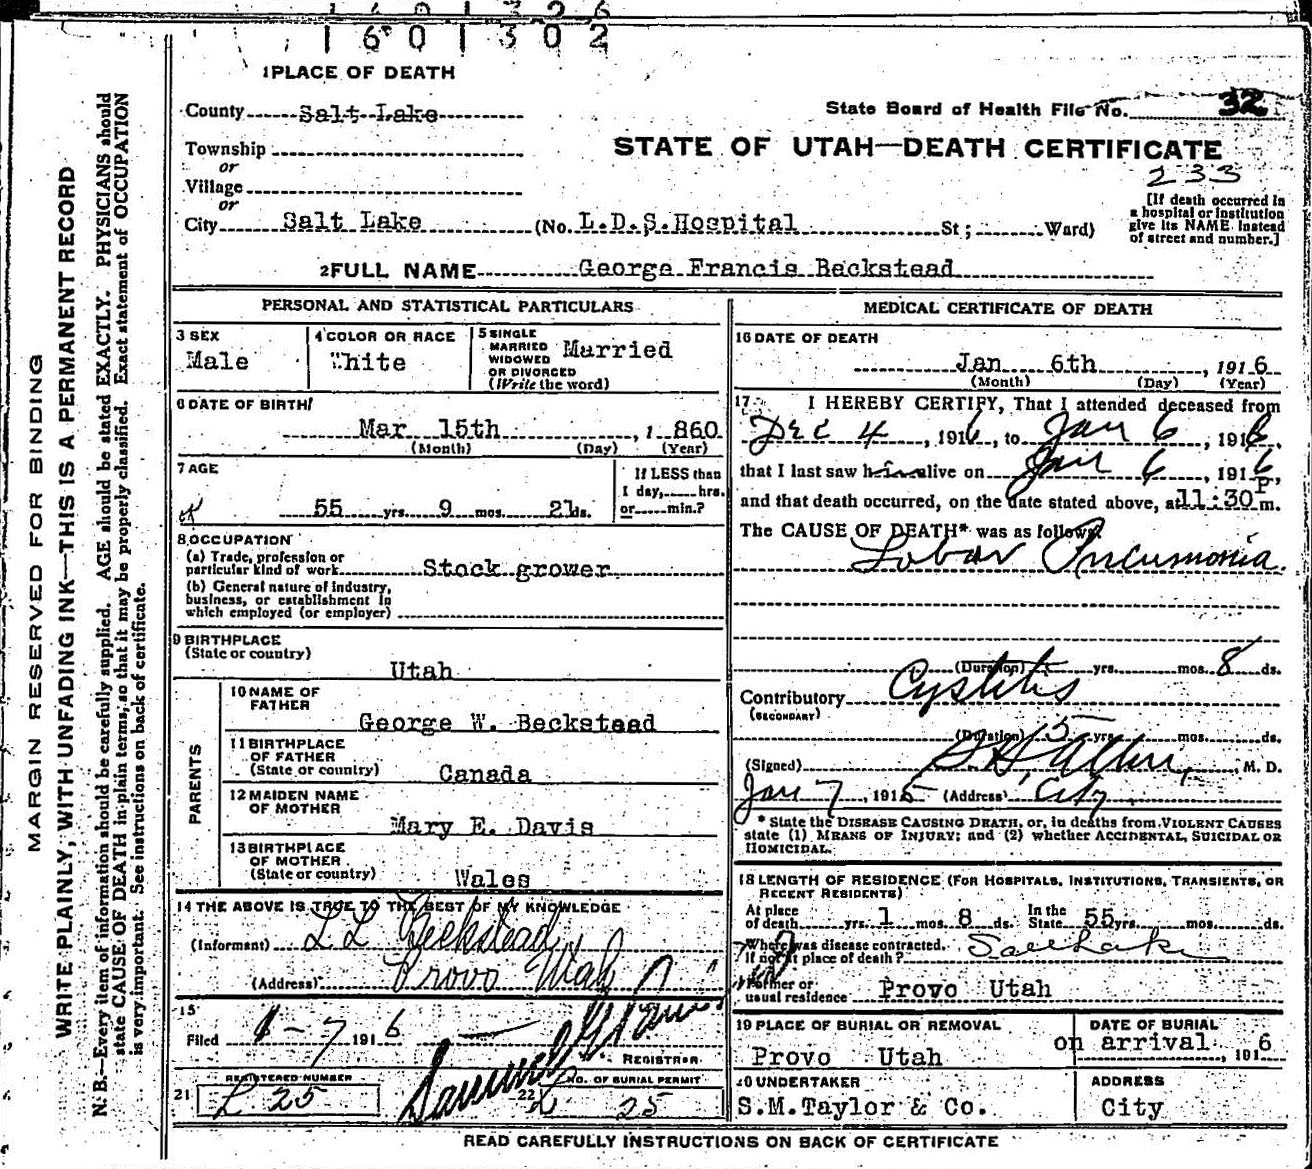 1601302
1 PLACE OF DEATH
County Salt Lake
State Board of Health File No. 32
Township
or
Village
or
STATE OF UTAH—DEATH CERTIFICATE
233
[If death occurred in a hospital or institution give its NAME instead of street and number.]
City Salt Lake (No. L.D.S.Hospital St; Ward)
2 FULL NAME George Francis Beckstead
PERSONAL AND STATISTICAL PARTICULARS
3 SEX
Male
4 COLOR OR RACE
White
5 SINGLE
MARRIED
WIDOWED
OR DIVORCED
(Write the word)
Married
6 DATE OF BIRTH
Mar 15th, 1860
(Month) (Day) (Year)
7 AGE
55 yrs. 9 mos. 21 ds.
If LESS than
1 day, hrs.
or min.?
8 OCCUPATION
(a) Trade, profession or
particular kind of work Stock grower
(b) General nature of industry,
business, or establishment in
which employed (or employer)
9 BIRTHPLACE
(State or country)
Utah
PARENTS
10 NAME OF
FATHER
George W. Beckstead
11 BIRTHPLACE
OF FATHER
(State or country) Canada
12 MAIDEN NAME
OF MOTHER
Mary E. Davis
13 BIRTHPLACE
OF MOTHER
(State or country) Wales
14 THE ABOVE IS TRUE TO THE BEST OF MY KNOWLEDGE
(Informant) L L Beckstead
(Address) Provo Utah
15
Filed 1-7 1916
REGISTRAR
21 REGISTERED NUMBER
L 25
22 NO. OF BURIAL PERMIT
L 25
MEDICAL CERTIFICATE OF DEATH
16 DATE OF DEATH
Jan 6th, 1916
(Month) (Day) (Year)
17 I HEREBY CERTIFY, That I attended deceased from
Dec 4, 1916, to Jan 6, 1916,
that I last saw him alive on Jan 6, 1916,
and that death occurred, on the date stated above, at 11:30 P m.
The CAUSE OF DEATH* was as follows:
Lobar Pneumonia.
(Duration) yrs. mos. 8 ds.
Contributory Cystitis
(SECONDARY)
(Duration) 5 yrs. mos. ds.
(Signed) , M. D.
Jan 7, 1916 (Address) City
* State the DISEASE CAUSING DEATH, or, in deaths from VIOLENT CAUSES
state (1) MEANS OF INJURY; and (2) whether ACCIDENTAL, SUICIDAL OR
HOMICIDAL.
18 LENGTH OF RESIDENCE (FOR HOSPITALS, INSTITUTIONS, TRANSIENTS, OR
RECENT RESIDENTS)
At place
of death yrs. 1 mos. 8 ds. In the
State 55 yrs. mos. ds.
Where was disease contracted,
If not at place of death? Salt Lake
Former or
usual residence Provo Utah
19 PLACE OF BURIAL OR REMOVAL
Provo Utah
DATE OF BURIAL
on arrival, 1916
20 UNDERTAKER
S.M.Taylor & Co.
ADDRESS
City
READ CAREFULLY INSTRUCTIONS ON BACK OF CERTIFICATE
MARGIN RESERVED FOR BINDING
WRITE PLAINLY, WITH UNFADING INK—THIS IS A PERMANENT RECORD
N. B.—Every item of information should be carefully supplied. AGE should be stated EXACTLY. PHYSICIANS should
state CAUSE OF DEATH in plain terms, so that it may be properly classified. Exact statement of OCCUPATION
is very important. See instructions on back of certificate.